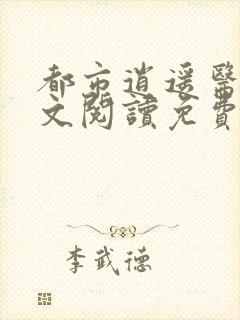 都市逍遥醫
文閱讀免費
李武德